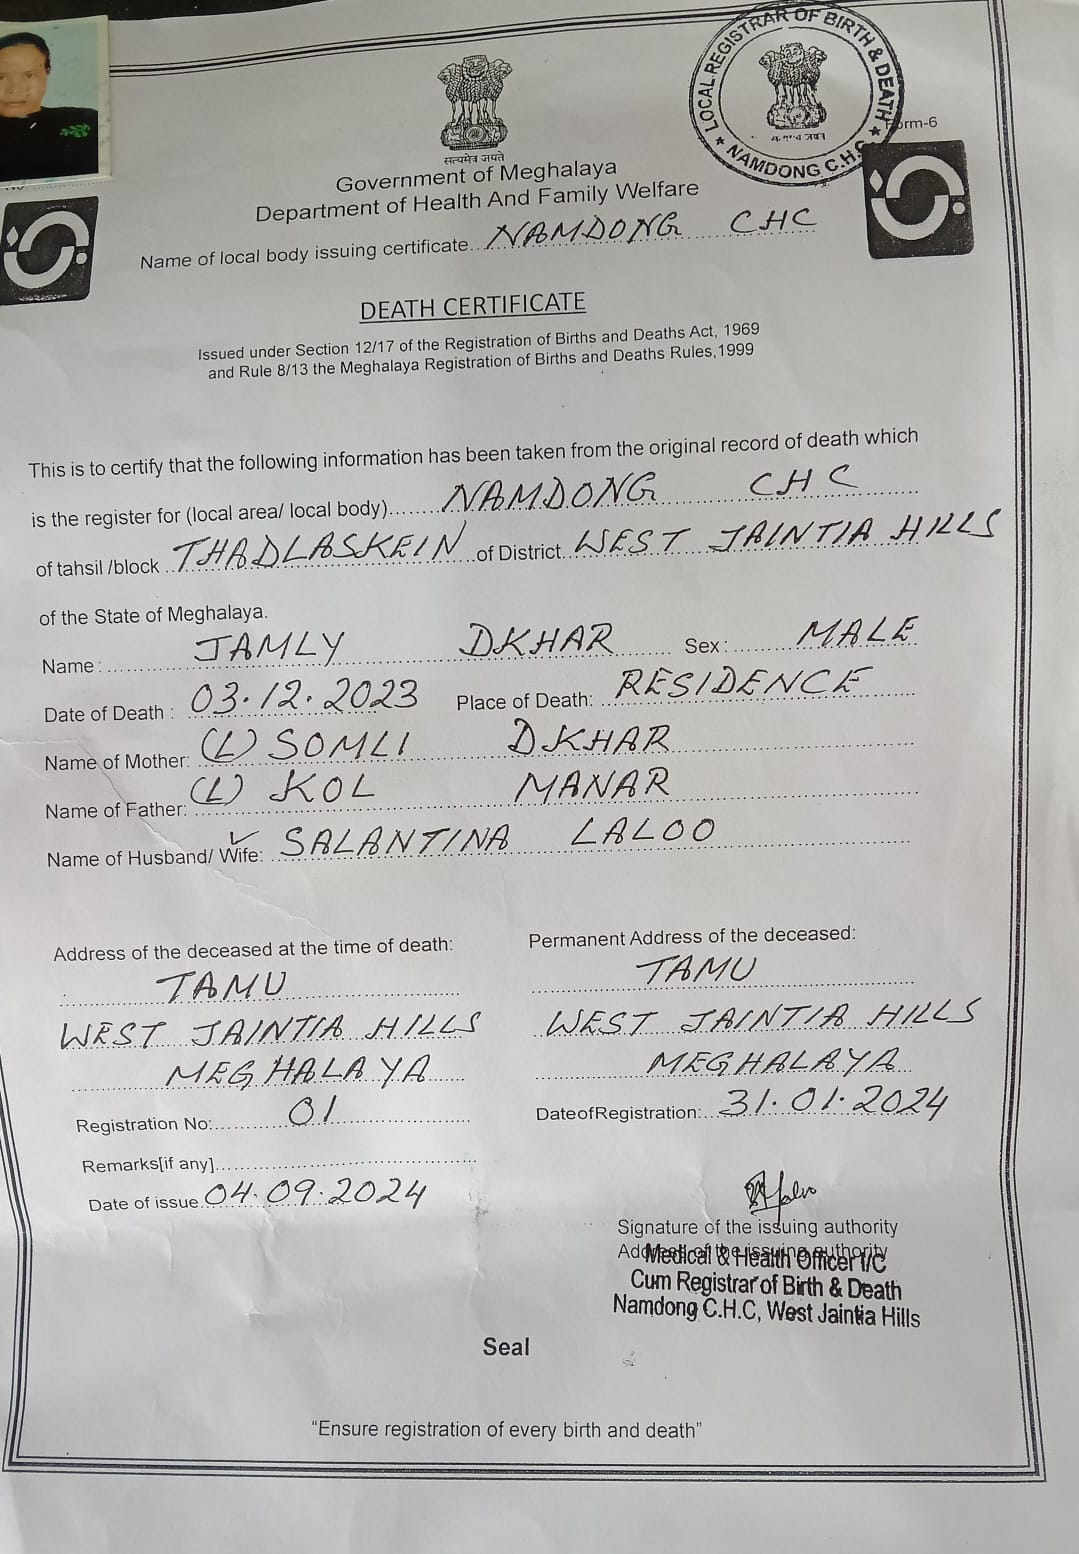 LOCAL REGISTRAR OF BIRTH & DEATH
NAMDONG C.H.C.
Form-6
सत्यमेव जयते
Government of Meghalaya
Department of Health And Family Welfare
Name of local body issuing certificate...NAMDONG CHC
DEATH CERTIFICATE
Issued under Section 12/17 of the Registration of Births and Deaths Act, 1969
and Rule 8/13 the Meghalaya Registration of Births and Deaths Rules,1999
This is to certify that the following information has been taken from the original record of death which
is the register for (local area/ local body).......NAMDONG CHC
of tahsil /block ..THADLASKEIN...of District..WEST JAINTIA HILLS
of the State of Meghalaya.
Name :..........JAMLY DKHAR Sex:......MALE
Date of Death : 03.12.2023 Place of Death: RESIDENCE
Name of Mother: (L) SOMLI DKHAR
Name of Father: (L) KOL MANAR
Name of Husband/ Wife: SALANTINA LALOO
Address of the deceased at the time of death: Permanent Address of the deceased:
TAMU TAMU
WEST JAINTIA HILLS WEST JAINTIA HILLS
MEGHALAYA MEGHALAYA
Registration No:.......01 DateofRegistration:..31.01.2024
Remarks[if any]
Date of issue 04.09.2024
Signature of the issuing authority
Address of the issuing authority
Medical & Health Officer I/C
Cum Registrar of Birth & Death
Namdong C.H.C, West Jaintia Hills
Seal
“Ensure registration of every birth and death”